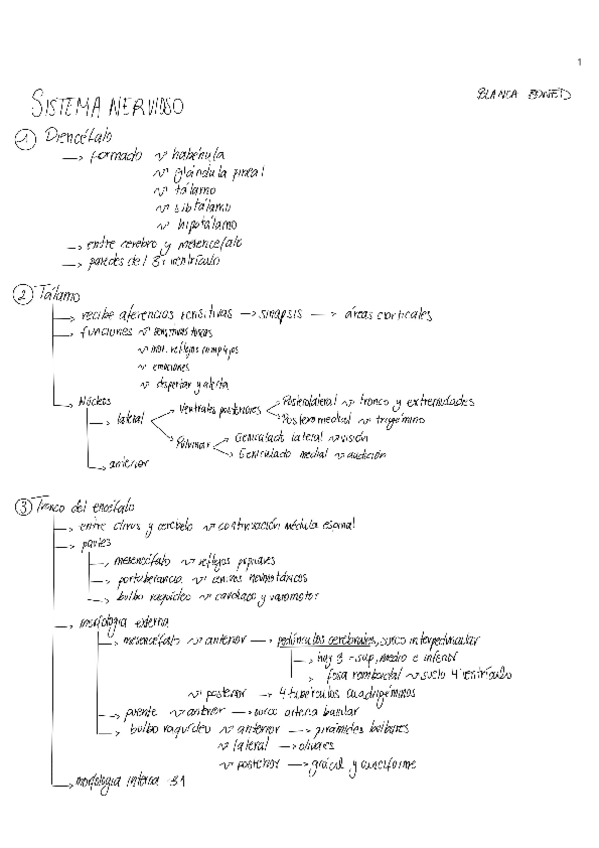 1
BLANCA BONETO
SISTEMA NERVIOSO
① Diencéfalo
→ formado ~ habénula
~ glándula pineal
~ tálamo
~ subtálamo
~ hipotálamo
→ entre cerebro y mesencéfalo
→ paredes del 3er ventrículo
② Tálamo
→ recibe aferencias sensitivas → sinapsis → áreas corticales
→ funciones ~ sensitivas
~ mot. reflejos complejos
~ emociones
~ despertar y alerta
→ Núcleos
→ lateral → Ventrales posteriores → Posterolateral ~ tronco y extremidades
→ Posteromedial ~ trigémino
→ Pulvinar → Geniculado lateral ~ visión
→ Geniculado medial ~ audición
→ anterior
③ Tronco del encéfalo
→ entre clivus y cerebelo ~ continuación médula espinal
→ partes
→ mesencéfalo ~ reflejos pupilares
→ protuberancia ~ centros neumotáxicos
→ bulbo raquídeo ~ cardíaco y vasomotor
→ morfología externa
→ mesencéfalo ~ anterior → pedúnculos cerebrales, surco interpeduncular
→ hay 3 - sup, medio e inferior
→ fosa romboidal ~ suelo 4º ventrículo
~ posterior → 4 tubérculos cuadrigéminos
→ puente ~ anterior → surco arteria basilar
→ bulbo raquídeo ~ anterior → pirámides bulbares
~ lateral → olivares
~ posterior → grácil y cuneiforme
→ morfología interna